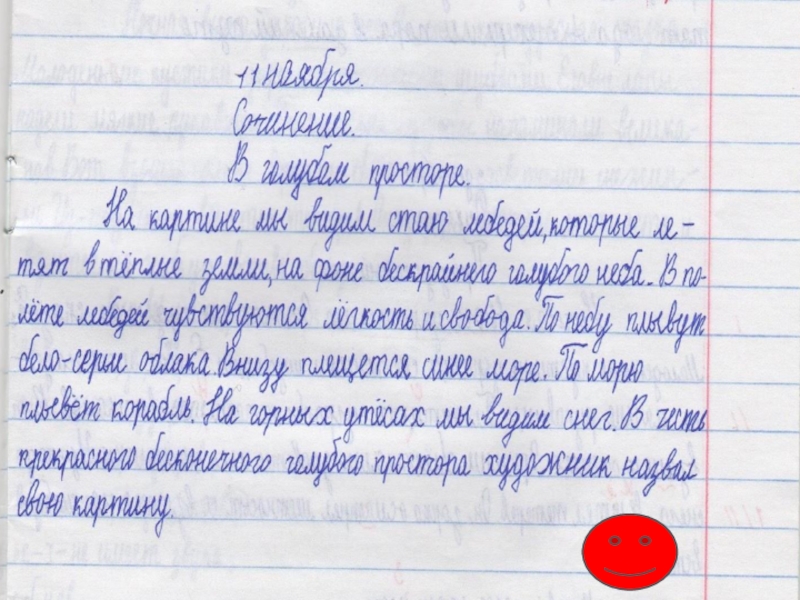 11 ноября.
Сочинение.
В голубом просторе.
На картине мы видим стаю лебедей, которые ле-
тят в тёплые земли, на фоне бескрайнего голубого неба. В по-
лёте лебедей чувствуются лёгкость и свобода. По небу плывут
бело-серые облака. Внизу плещется синее море. По морю
плывёт корабль. На горных утёсах мы видим снег. В честь
прекрасного бесконечного голубого простора художник назвал
свою картину.